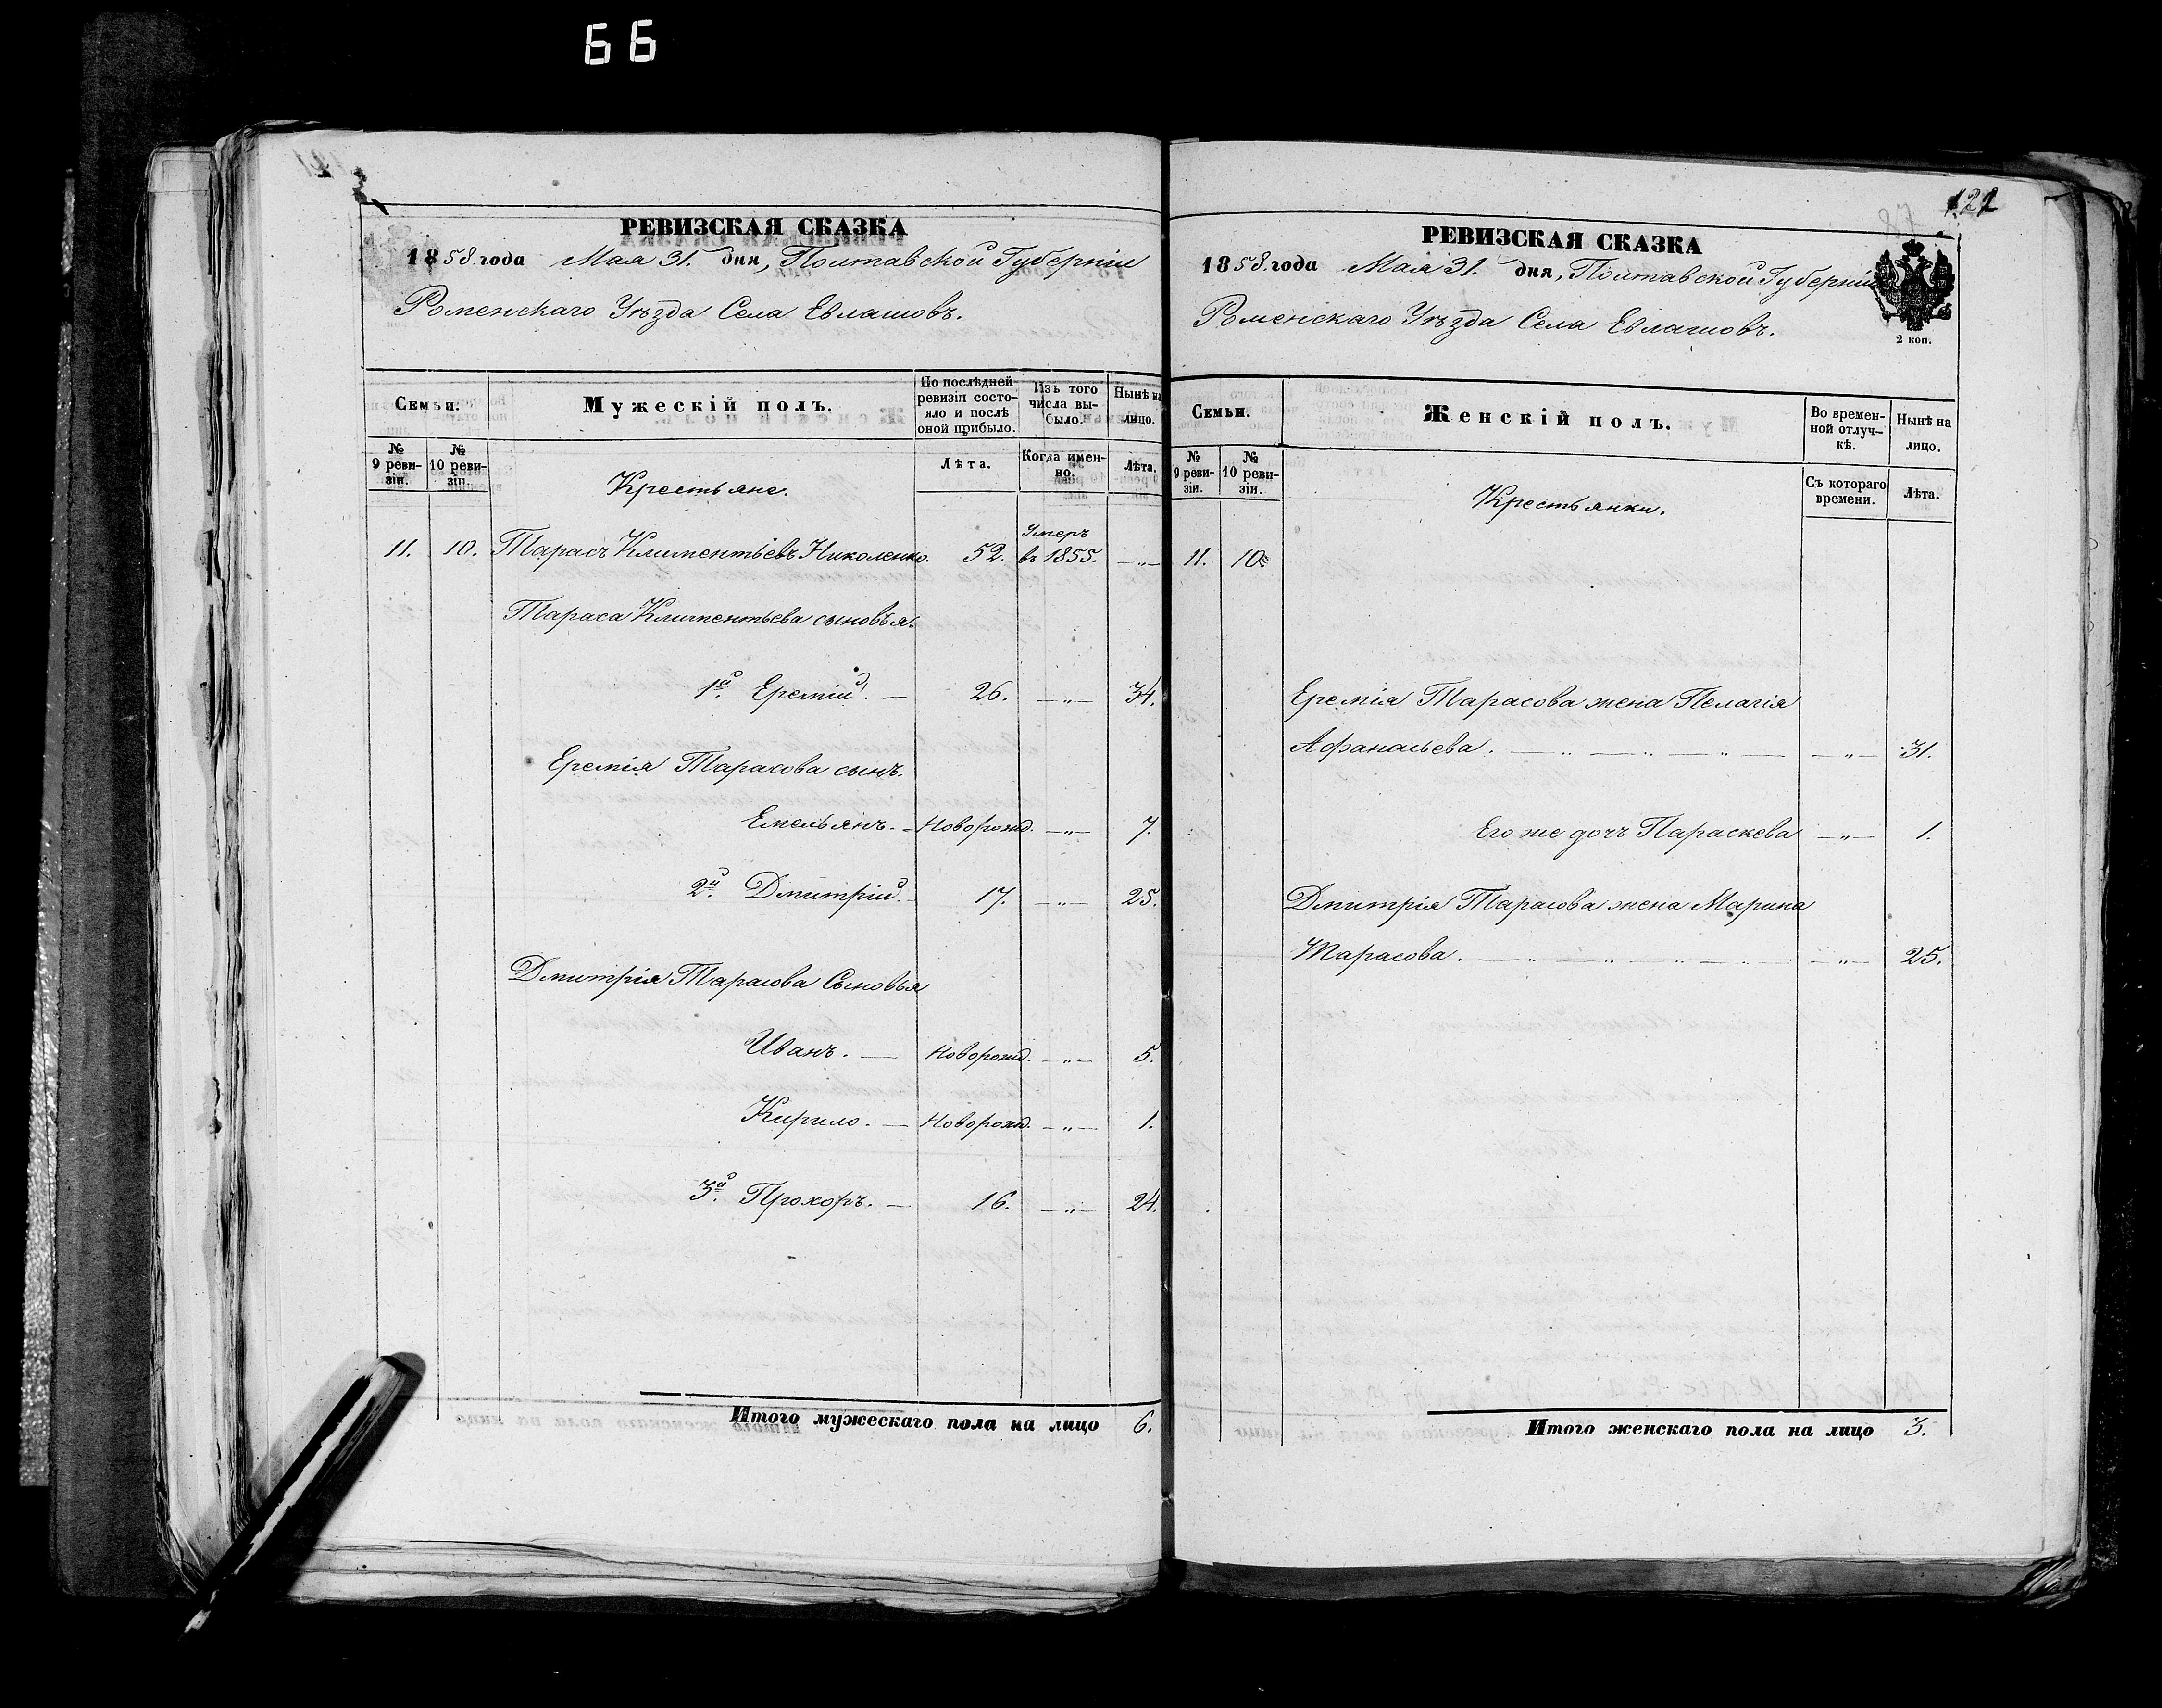 66
РЕВИЗСКАЯ СКАЗКА
1858. года Мая 31. дня, Полтавской Губерніи
Роменскаго Уѣзда Села Евлашовъ.
Семьи.
Мужескій полъ.
По послѣдней ревизіи состояло и послѣ оной прибыло.
Изъ того числа выбыло.
Нынѣ на лицо.
№ 9 ревизіи.
№ 10 ревизіи.
Лѣта.
Когда именно.
Лѣта.
Крестьяне.
11. 10. Тарасъ Климентьевъ Николенко. 52. Умеръ въ 1855. —„—
Тараса Климентьева сыновья.
1й Еремій. — 26. —„— 34.
Еремія Тарасова сынъ.
Емельянъ. — Новорожд. —„— 7.
2й Дмитрій. — 17. —„— 25.
Дмитрія Тарасова Сыновья
Иванъ. — Новорожд. —„— 5.
Кирило. — Новорожд. —„— 1.
3й Прохоръ. — 16. —„— 24.
Итого мужескаго пола на лицо 6.
121
РЕВИЗСКАЯ СКАЗКА
1858. года Мая 31. дня, Полтавской Губерніи
Роменскаго Уѣзда Села Евлашовъ.
2 коп.
Семьи.
Женскій полъ.
Во временной отлучкѣ.
Нынѣ на лицо.
№ 9 ревизіи.
№ 10 ревизіи.
Съ котораго времени.
Лѣта.
Крестьянки.
11. 10.
Еремія Тарасова жена Пелагія
Афанасьева. — „ — „ — „ — —„— 31.
Его же дочь Параскева —„— 1.
Дмитрія Тарасова жена Марина
Тарасова. — „ — „ — „ — „ —„— 25.
Итого женскаго пола на лицо 3.